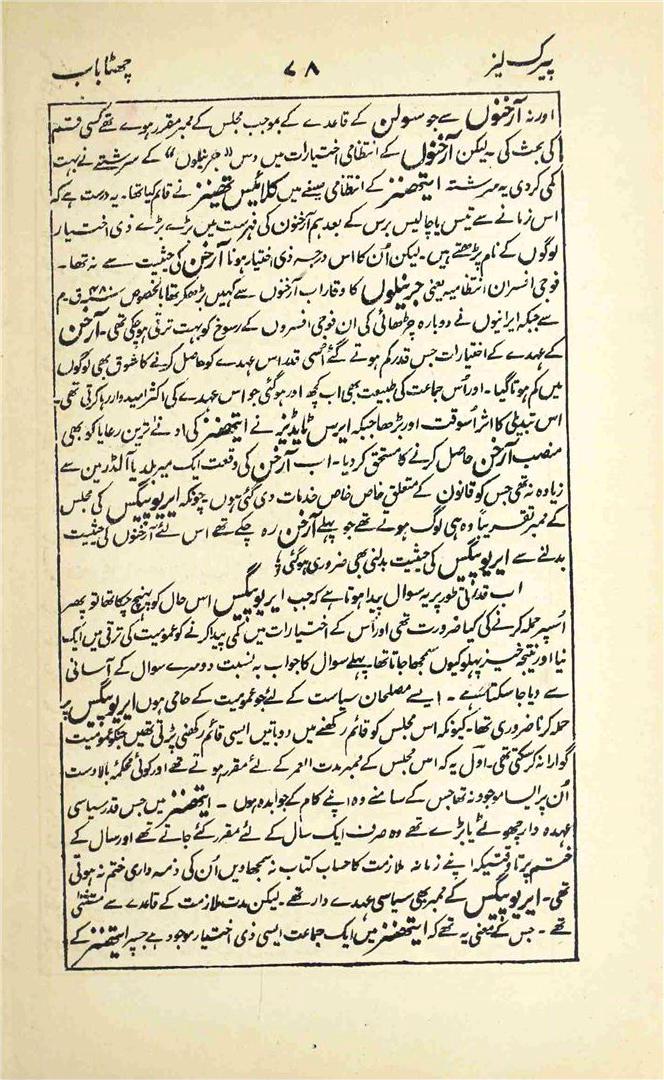 پیرک لیز ۷۸ چھٹا باب
اور نہ آرخنوں سے جو سولن کے قاعدے کے موجب مجلس کے ممبر مقرر ہوے تھے کسی قسم
کی بحث کی ۔ لیکن آرخنوں کے انتظامی اختیارات میں دس "جرنیلوں" کے سرشتے نے بہت
کمی کر دی یہ سرشتہ ایتھنز کے انتظامی صیغے میں کلائیس تھینیز نے قائم کیا تھا ۔ یہ درست ہے کہ
اس زمانے سے تیس یا چالیس برس کے بعد ہم آرخنون کی فہرست میں بڑے بڑے ذی اختیار
لوگوں کے نام پڑھتے ہیں ۔ لیکن اُن کا اس درجہ ذی اختیار ہونا آرخن کی حیثیت سے نہ تھا ۔
فوجی افسران انتظامیہ یعنی جرنیلوں کا وقار اب آرخنوں سے کہیں بڑھکر تھا بالخصوص سنہ ۴۸۰ ق م
سے جبکہ ایرانیوں نے دوبارہ چڑھائی کی ان فوجی افسروں کے رسوخ کو بہت ترقی ہو چکی تھی ۔ آرخن
کے عہدے کے اختیارات جس قدر کم ہوتے گئے اُسی قدر اس عہدے کو حاصل کرنے کا شوق بھی لوگوں
میں کم ہوتا گیا ۔ اور اُس جماعت کی طبیعت بھی اب کچھ اور ہو گئی جو اس عہدے کی اکثر امیدوار رہا کرتی تھی ۔
اس تبدیلی کا اثر اُسوقت اور بڑھا جبکہ ایرس ٹایڈیز نے ایتھنز کی ادنےٰ ترین رعایا کو بھی
منصب آرخن حاصل کرنے کا مستحق کر دیا ۔ اب آرخن کی وقعت ایک میر بلدیا آلڈرمین سے
زیادہ نہ تھی جس کو قانون کے متعلق خاص خاص خدمات دی گئی ہوں ۔ چونکہ ایریوپیگس کی مجلس
کے ممبر تقریباً وہ ہی لوگ ہوتے تھے جو پہلے آرخن رہ چکے تھے اس لئے آرخنوں کی حیثیت
بدلنے سے ایریوپیگس کی حیثیت بدلنی بھی ضروری ہو گئی
اب قدرتی طور پر یہ سوال پیدا ہوتا ہے کہ جب ایریوپیگس اس حال کو پہنچ چکا تھا تو پھر
اُسپر حملہ کرنے کی کیا ضرورت تھی اور اُس کے اختیارات میں کمی پیدا کرنے کو عمومیت کی ترقی میں ایک
نیا اور نتیجہ خیز پہلو کیوں سمجھا جاتا تھا ۔ پہلے سوال کا جواب بہ نسبت دوسرے سوال کے آسانی
سے دیا جا سکتا ہے ۔ ایسے مصلحان سیاست کے لئے جو عمومیت کے حامی ہوں ایریوپیگس پر
حملہ کرنا ضروری تھا ۔ کیونکہ اس مجلس کو قائم رکھنے میں دو باتیں ایسی قائم رکھنی پڑتی تھیں جنکو عمومیت
گوارا نہ کر سکتی تھی ۔ اول یہ کہ اس مجلس کے ممبر مدت العمر کے لئے مقرر ہوتے تھے اور کوئی محکمۂ بالادست
اُن پر ایسا موجود نہ تھا جس کے سامنے وہ اپنے کام کے جوابدہ ہوں ۔ ایتھنز میں جس قدر سیاسی
عہدہ دار چھوٹے یا بڑے تھے وہ صرف ایک سال کے لئے مقرر کئے جاتے تھے اور سال کے
ختم پر تا وقتیکہ اپنے زمانہ ملازمت کا حساب کتاب نہ سمجھا دیں اُن کی ذمہ داری ختم نہ ہوتی
تھی ۔ ایریوپیگس کے ممبر بھی سیاسی عہدے دار تھے ۔ لیکن مدت ملازمت کے قاعدے سے مستثنیٰ
تھے ۔ جس کے معنی یہ تھے کہ ایتھنز میں ایک جماعت ایسی ذی اختیار موجود ہے جسپر ایتھنز کے